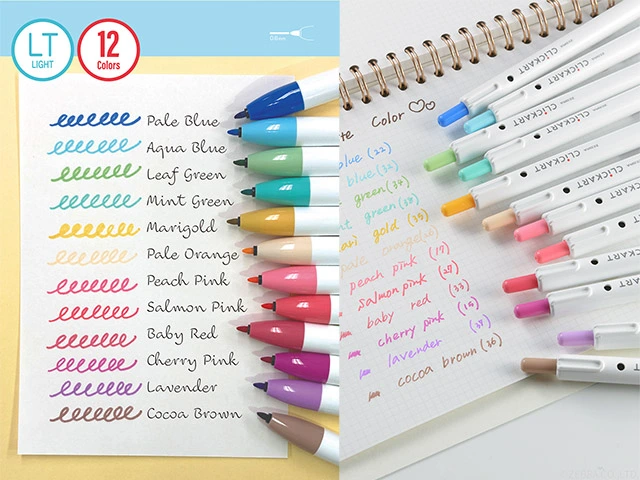 LT
LIGHT
12
Colors
0.6mm
Pale Blue
Aqua Blue
Leaf Green
Mint Green
Marigold
Pale Orange
Peach Pink
Salmon Pink
Baby Red
Cherry Pink
Lavender
Cocoa Brown
Color
blue (22)
blue (32)
green (34)
green (38)
gold (35)
pale orange
peach pink (17)
salmon pink (27)
baby red (33)
cherry pink (15)
lavender (37)
cocoa brown (36)
CLiCKART
CLiCKART
CLiCKART
CLiCKART
CLiCKART
CLiCKART